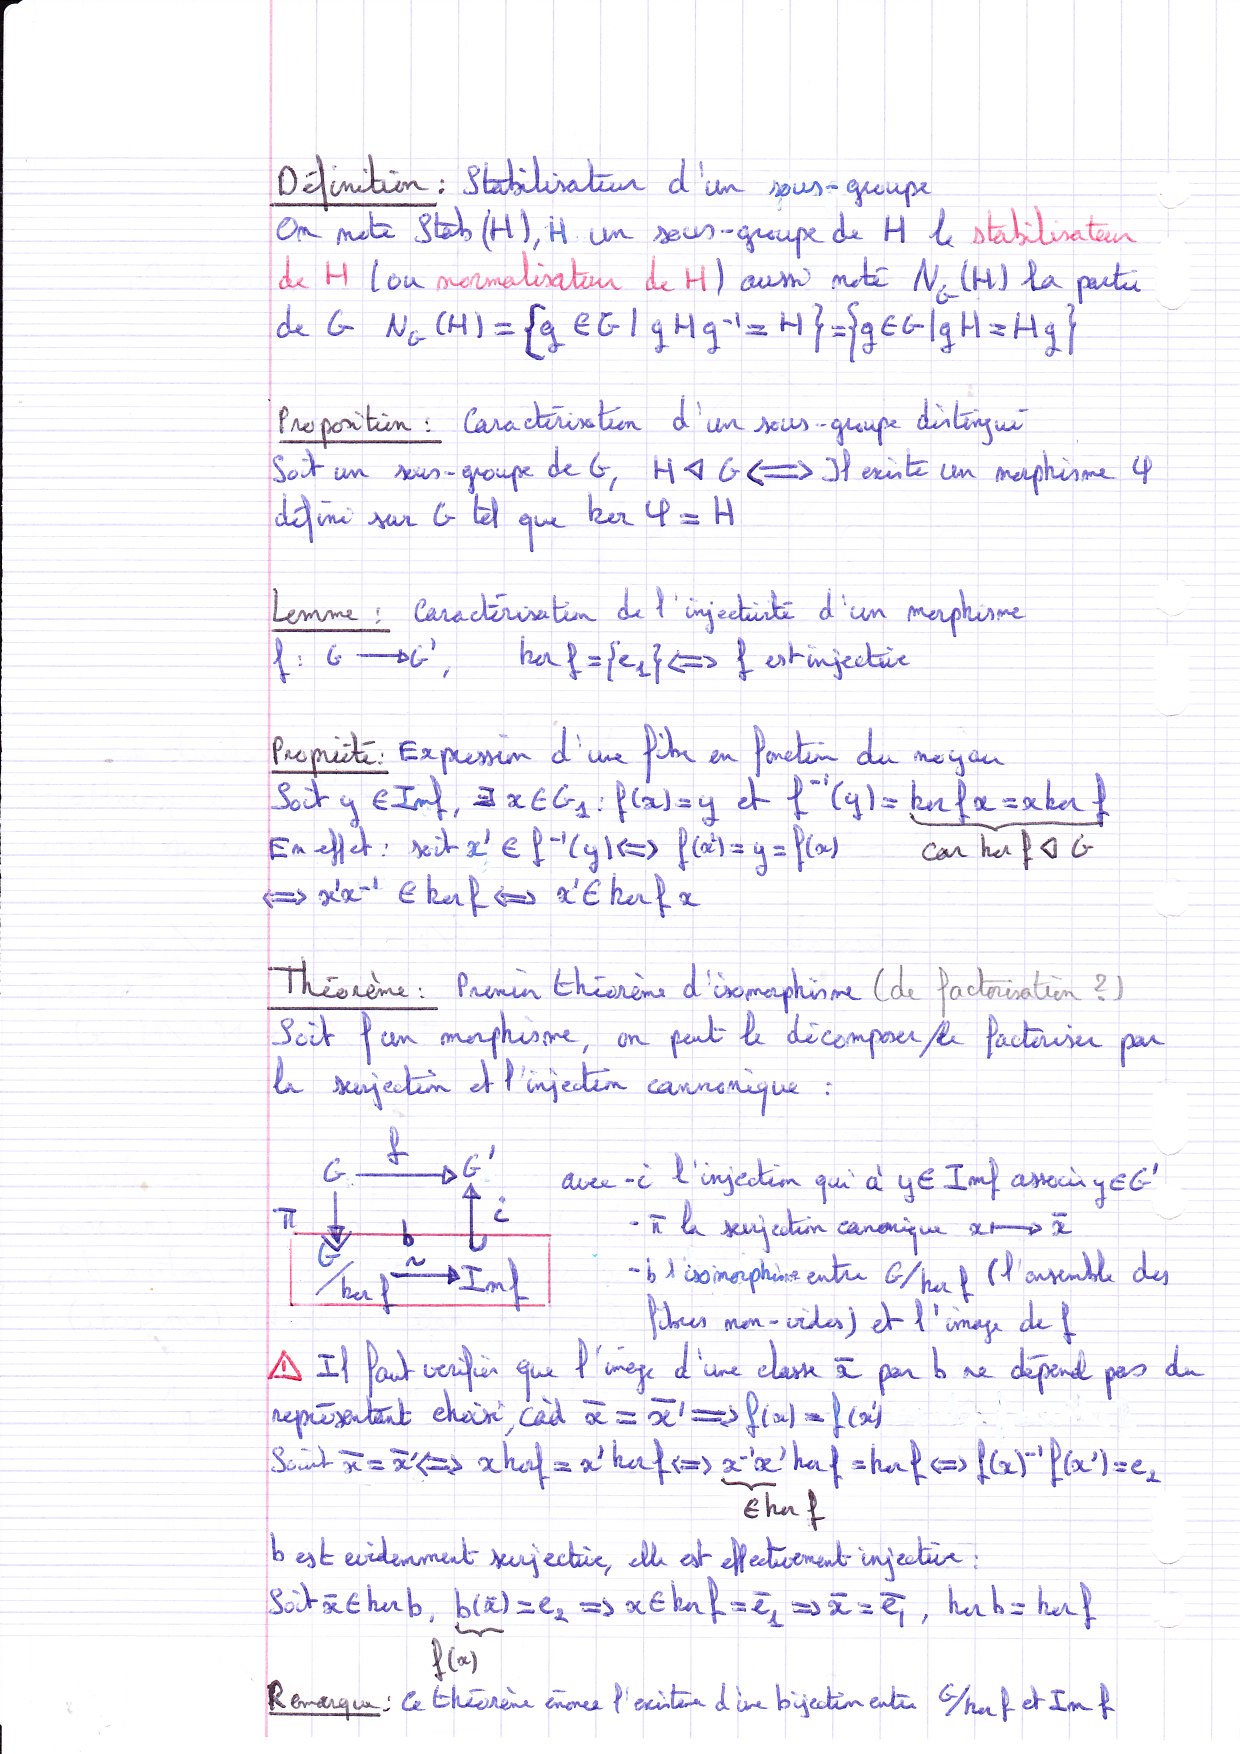 Définition : Stabilisateur d'un sous-groupe
On note Stab(H), H un sous-groupe de H le stabilisateur
de H (ou normalisateur de H) aussi noté N_G(H) la partie
de G N_G(H) = {g ∈ G | gHg⁻¹ = H} = {g ∈ G | gH = Hg}
Proposition : Caractérisation d'un sous-groupe distingué
Soit un sous-groupe de G, H ◁ G ⟺ Il existe un morphisme φ
défini sur G tel que ker φ = H
Lemme : Caractérisation de l'injectivité d'un morphisme
f : G ⟶ G', ker f = {e₁} ⟺ f est injective
Propriété : Expression d'une fibre en fonction du noyau
Soit y ∈ Imf, ∃ x ∈ G₁ : f(x) = y et f⁻¹(y) = ker f x = x ker f
En effet : soit x' ∈ f⁻¹(y) ⟺ f(x') = y = f(x) car ker f ◁ G
⟺ x'x⁻¹ ∈ ker f ⟺ x' ∈ ker f x
Théorème : Premier théorème d'isomorphisme (de factorisation ?)
Soit f un morphisme, on peut le décomposer/le factoriser par
la surjection et l'injection cannonique :
f
G ⟶ G' avec - i l'injection qui à y ∈ Imf associe y ∈ G'
π i - π la surjection canonique x ⟼ x̄
b
G/ker f ⥲ Imf - b l'isomorphisme entre G/ker f (l'ensemble des
fibres non-vides) et l'image de f
⚠ Il faut verifier que l'image d'une classe x̄ par b ne dépend pas du
représentant choisi, càd x̄ = x̄' ⟹ f(x) = f(x')
Soient x̄ = x̄' ⟺ x ker f = x' ker f ⟺ x⁻¹x' ker f = ker f ⟺ f(x)⁻¹f(x') = e₂
∈ ker f
b est evidemment surjective, elle est effectivement injective :
Soit x̄ ∈ ker b, b(x̄) = e₂ ⟹ x ∈ ker f = ē₁ ⟹ x̄ = ē₁, ker b = ker f
f(x)
Remarque : Ce théorème énonce l'existence d'une bijection entre G/ker f et Im f